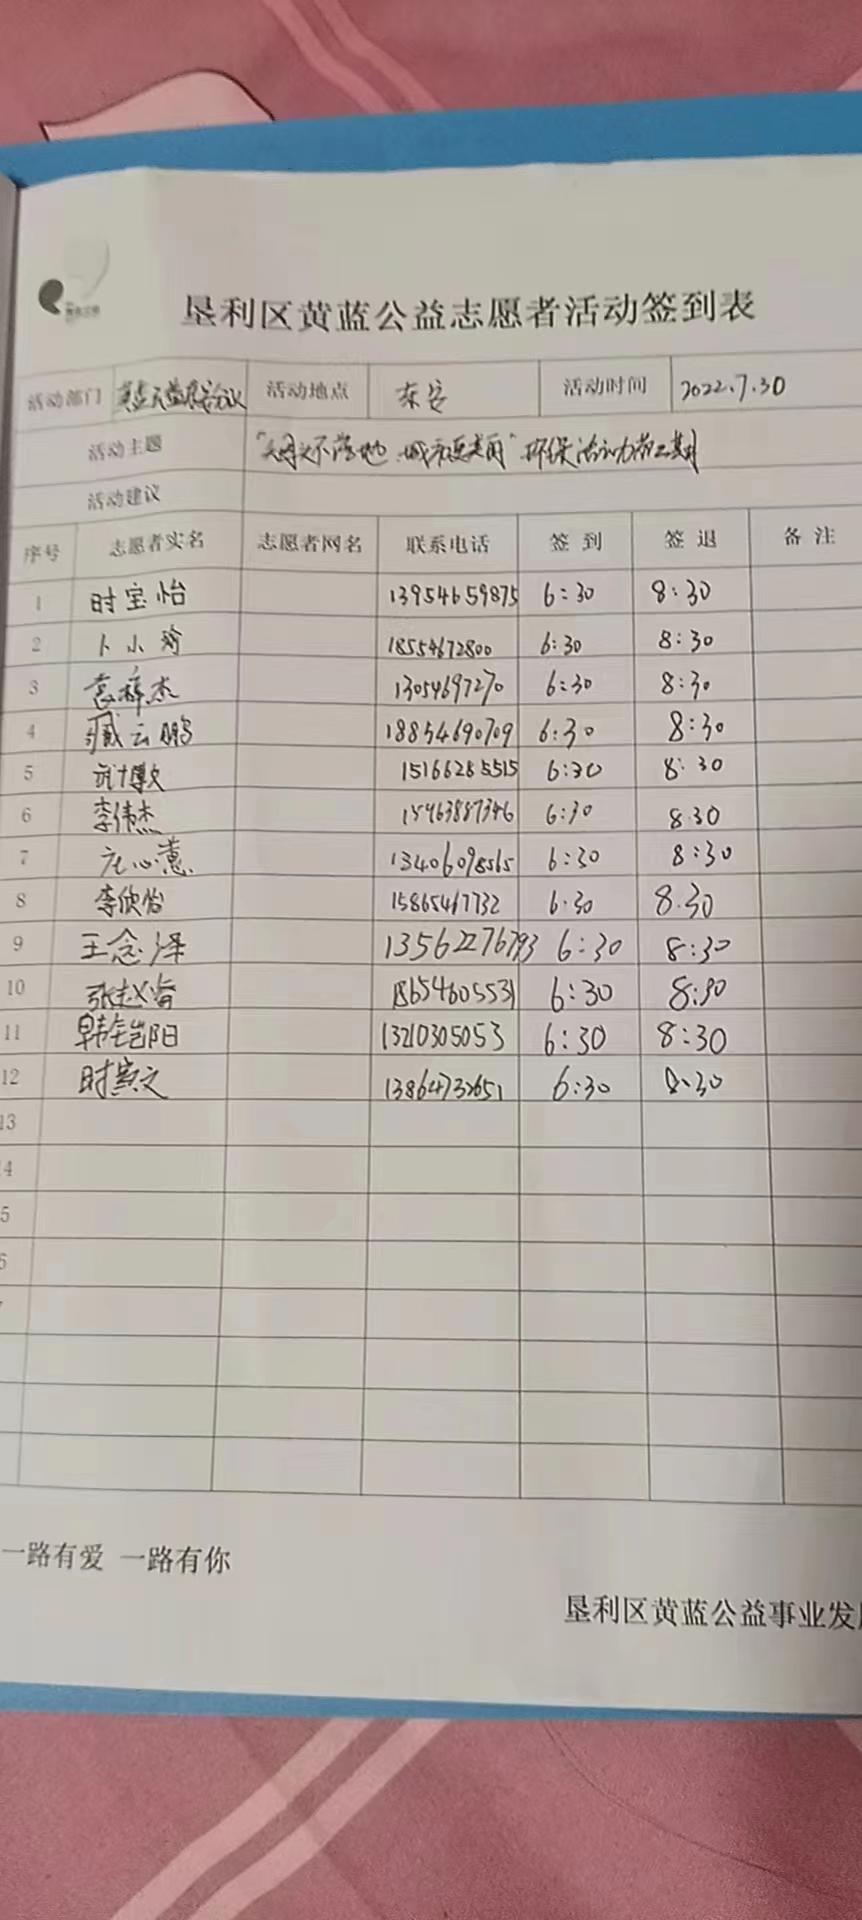 垦利区黄蓝公益志愿者活动签到表
活动部门 活动地点 东安 活动时间 2022.7.30
活动主题 "烟头不落地 城市更美丽" 环保活动第二期
活动建议
序号 志愿者实名 志愿者网名 联系电话 签到 签退 备注
1 时宝怡 13954659875 6:30 8:30
2 卜小琦 18554672800 6:30 8:30
3 袁梓杰 13054697270 6:30 8:30
4 臧云鹏 18854690709 6:30 8:30
5 15166285515 6:30 8:30
6 李伟杰 15463887346 6:30 8.30
7 13406098565 6:30 8:30
8 李欣怡 15865467732 6.30 8.30
9 王念泽 13562276793 6:30 8:30
10 18654605531 6:30 8:30
11 韩铠阳 13210305053 6:30 8:30
12 6:30 8:30
13
4
5
一路有爱 一路有你
垦利区黄蓝公益事业发